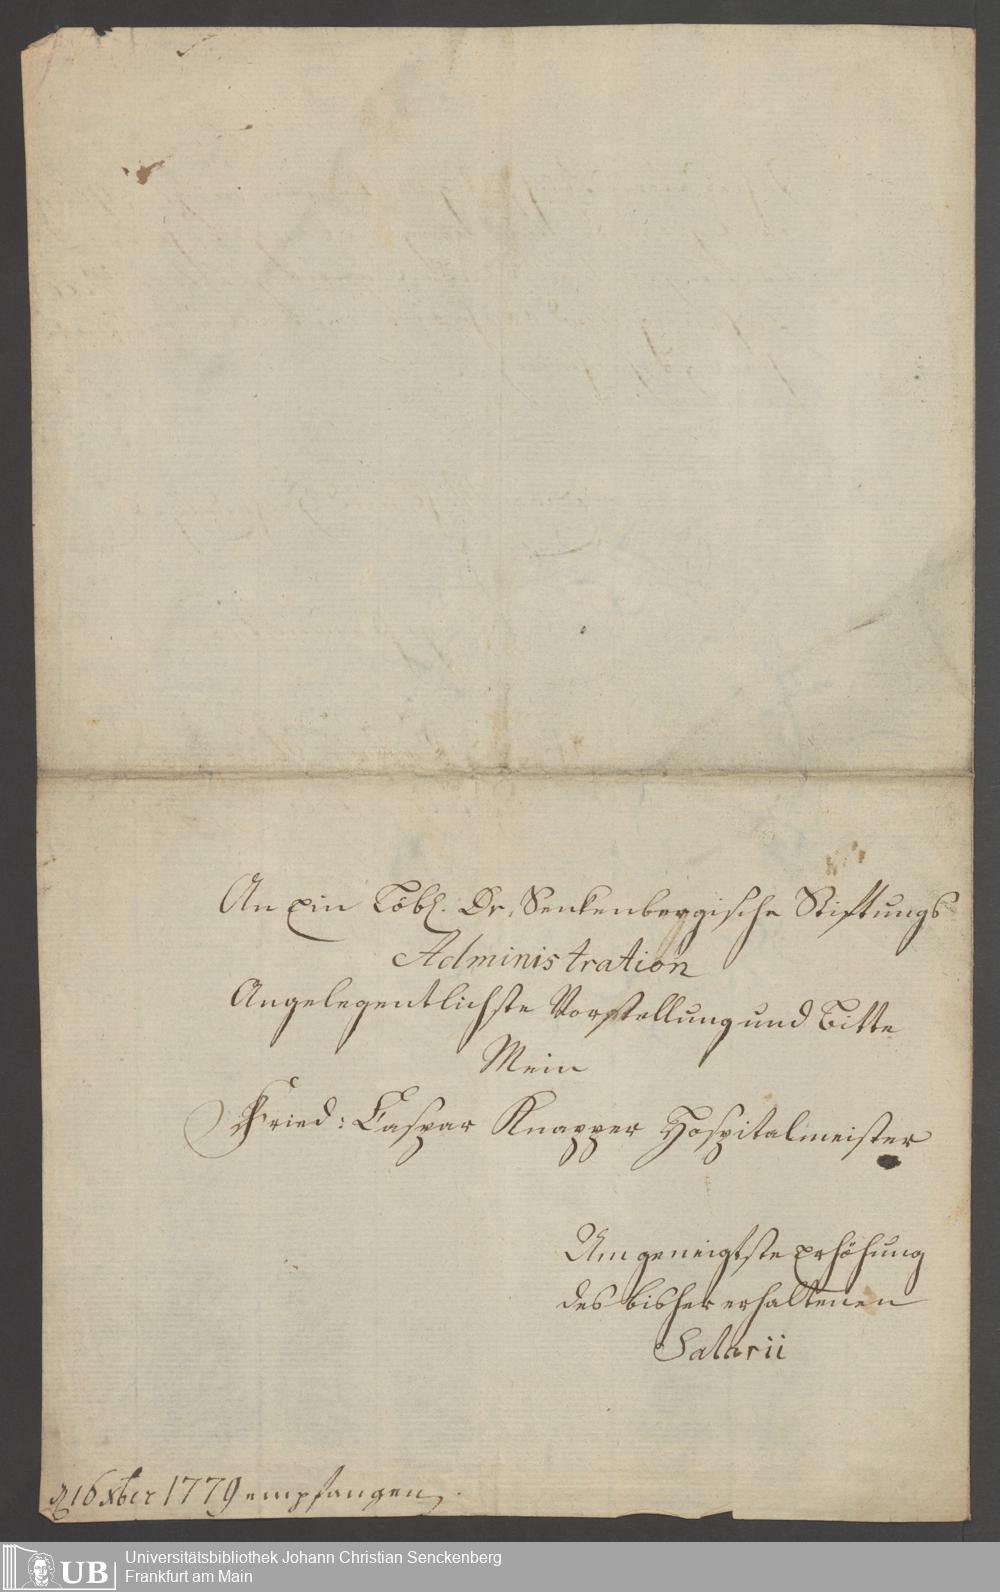 An Ein Löbl. Dr. Senkenbergische Stiftungs
Administration
Angelegentlichste Vorstellung und Bitte
Mein
Fried: Caspar Knapper Hospitalmeister
Um geneigtste Erhöhung
des bisher erhaltenen
Salarii
16 Xber 1779 empfangen.
UB
Universitätsbibliothek Johann Christian Senckenberg
Frankfurt am Main